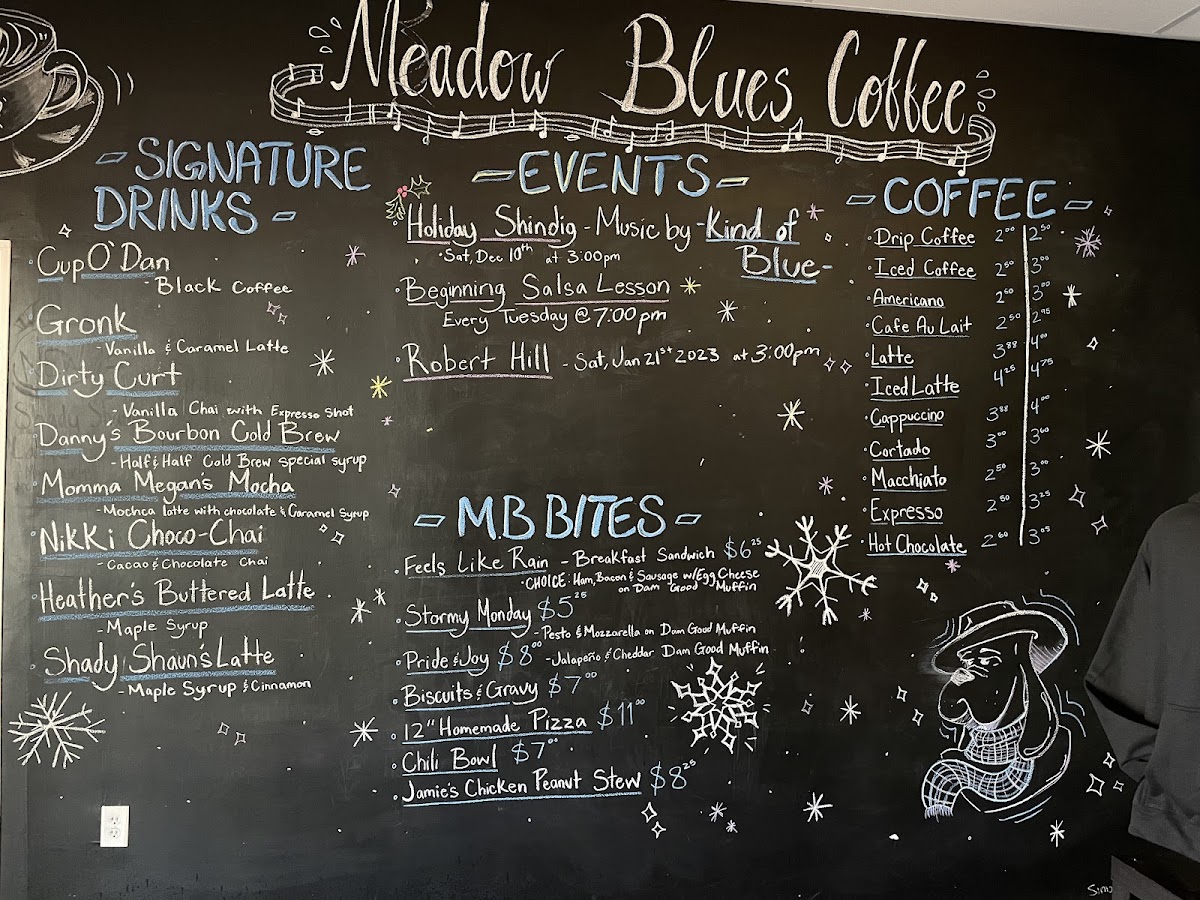 Meadow Blues Coffee
- SIGNATURE
DRINKS -
Cup O'Dan
- Black Coffee
Gronk
- Vanilla & Caramel Latte
Dirty Curt
- Vanilla Chai with Expresso Shot
Danny's Bourbon Cold Brew
- Half & Half Cold Brew special syrup
Momma Megan's Mocha
- Mochca latte with chocolate & Caramel Syrup
Nikki Choco-Chai
- Cacao & Chocolate Chai
Heather's Buttered Latte
- Maple Syrup
Shady Shaun's Latte
- Maple Syrup & Cinnamon
- EVENTS -
Holiday Shindig - Music by - Kind of
Blue -
• Sat, Dec 10th at 3:00pm
• Beginning Salsa Lesson
Every Tuesday @ 7:00 pm
• Robert Hill - Sat, Jan 21st 2023 at 3:00pm
- M.B BITES -
Feels Like Rain - Breakfast Sandwich $6.25
• CHOICE: Ham, Bacon & Sausage w/Egg Cheese
on Dam Good Muffin
• Stormy Monday $5.25
- Pesto & Mozzarella on Dam Good Muffin
• Pride & Joy $8.00 - Jalapeño & Cheddar Dam Good Muffin
• Biscuits & Gravy $7.00
• 12" Homemade Pizza $11.00
• Chili Bowl $7.00
• Jamie's Chicken Peanut Stew $8.25
- COFFEE -
• Drip Coffee 2.00 2.50
• Iced Coffee 2.50 3.00
• Americano 2.50 3.00
• Cafe Au Lait 2.50 2.95
• Latte 3.88 4.00
• Iced Latte 4.25 4.75
• Cappuccino 3.88 4.00
• Cortado 3.00 3.60
• Macchiato 2.50 3.00
• Expresso 2.50 3.25
• Hot Chocolate 2.60 3.05